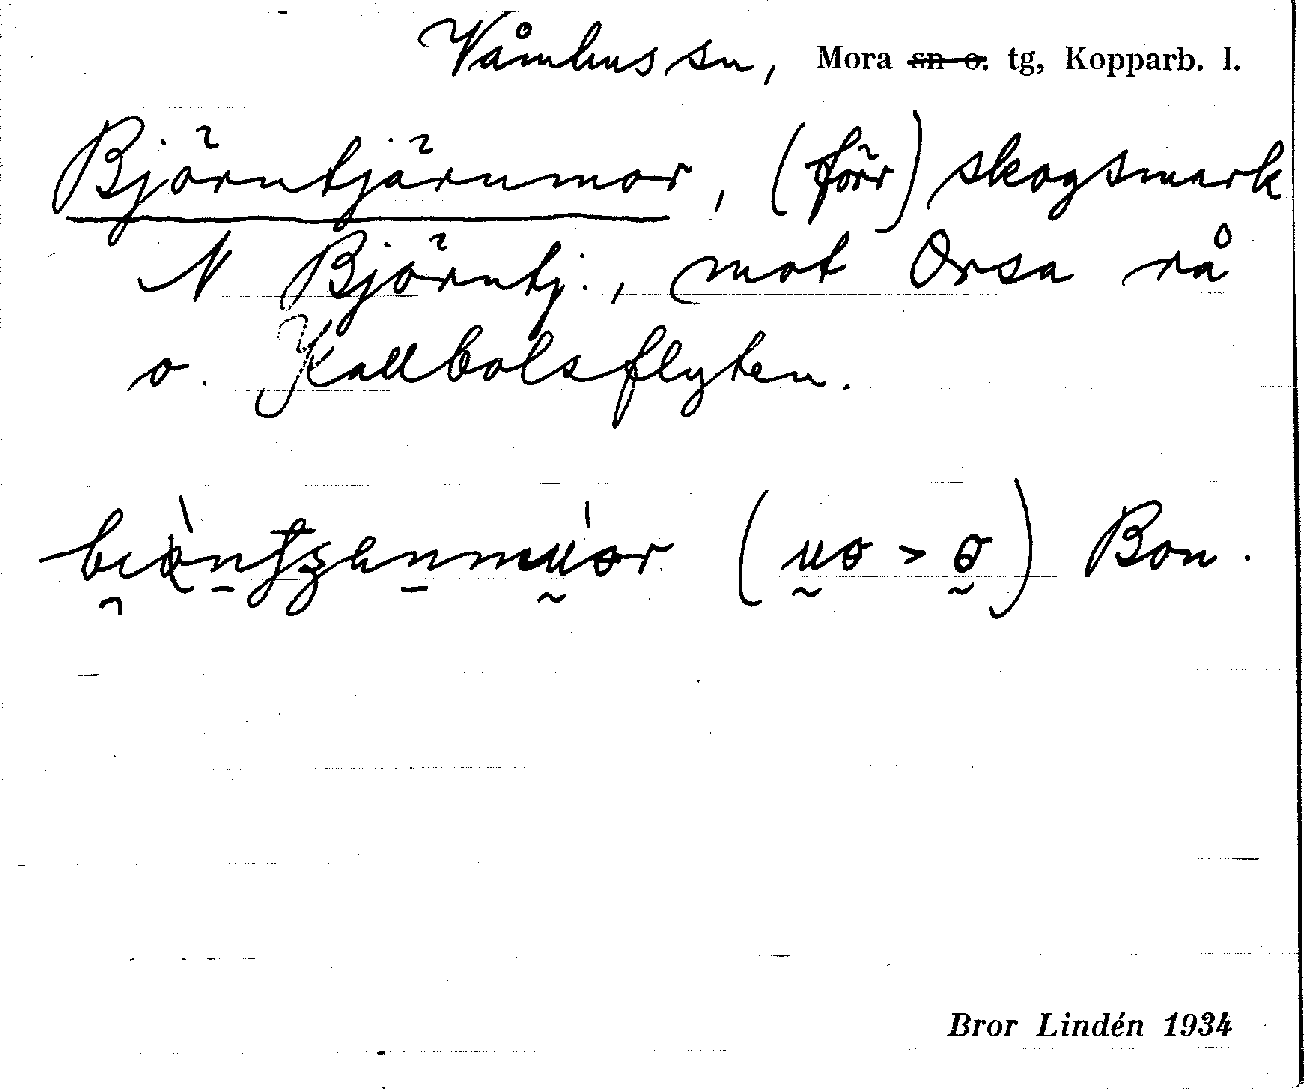 Våmhus sn, Mora sn o. tg, Kopparb. l.
Björntjärnmor, (förr) skogsmark
N Björntj., mot Orsa rå
o. Kallbolsflyten.
(uo > o) Bon.
Bror Lindén 1934